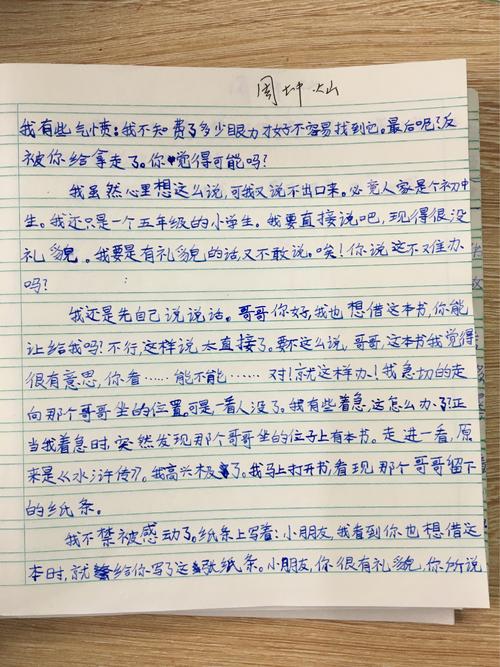 周坤灿
我有些气愤:我不知费了多少眼力才好不容易找到它。最后呢?反
被你给拿走了。你觉得可能吗?
我虽然心里想这么说,可我又说不出口来。必竟人家是个初中
生。我还只是一个五年级的小学生。我要直接说吧,现得很没
礼貌。我要是有礼貌的话,又不敢说。唉!你说这不难办
吗?
我还是先自己说说话。哥哥你好,我也想借这本书,你能
让给我吗?不行,这样说太直接了。要不这么说,哥哥,这本书我觉得
很有意思,你看……能不能……对!就这样办!我急切的走
向那个哥哥坐的位置。可是,一看人没了。我有些着急,这怎么办?正
当我着急时,突然发现那个哥哥坐的位子上有本书。走进一看,原
来是《水浒传》。我高兴极了。我马上打开书,看现那个哥哥留下
的纸条。
我不禁被感动了。纸条上写着:小朋友,我看到你也想借这
本时,就给你写了这张纸条。小朋友,你很有礼貌,你所说